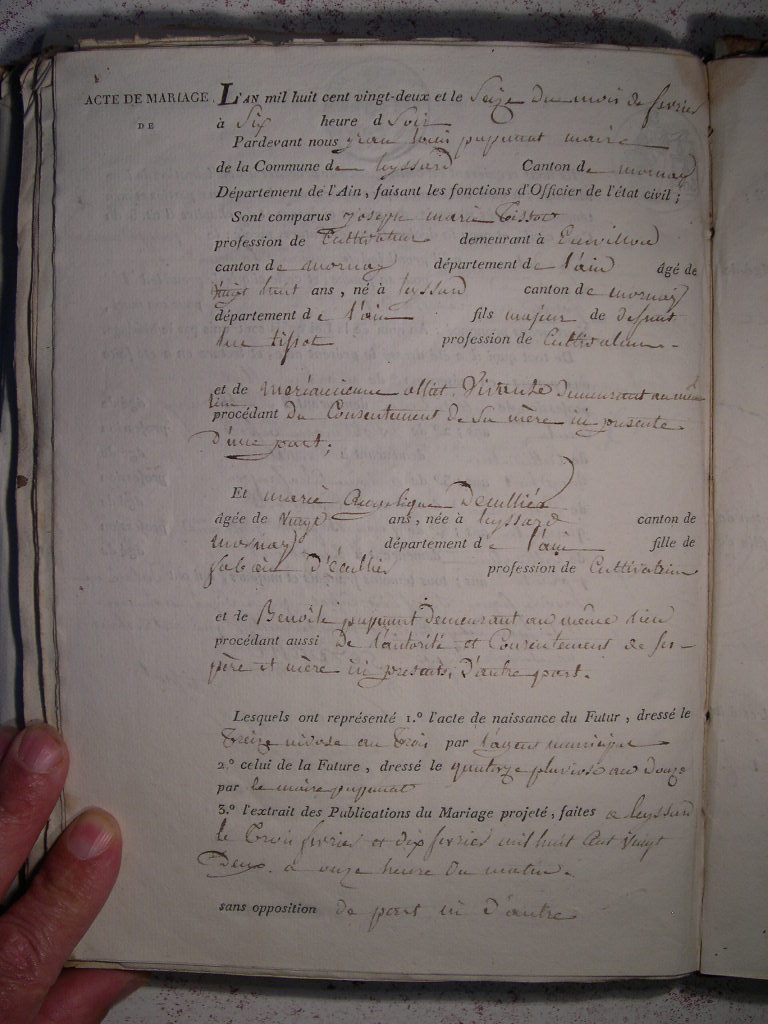 ACTE DE MARIAGE
DE
L'AN mil huit cent vingt-deux et le Seize du mois de fevrier
à Six heure d Soir
Pardevant nous jean louis pugunat maire
de la Commune de leyssard Canton de mornay
Département de l'Ain, faisant les fonctions d'Officier de l'état civil;
Sont comparus Joseph marie Tissot
profession de Cultivateur demeurant à
canton de mornay département de l'ain âgé de
vingt huit ans, né à leyssard canton de mornay
département de l'ain fils majeur de defunt
tissot profession de Cultivateur
et de mariaurienne alliat Vivente demeurant au même
lieu
procédant Du Consentement de Sa mère ici presente
D'une part;
Et marie Angelique Decullier
âgée de vingt ans, née à leyssard canton de
mornay département de l'ain fille de
D'écullier profession de Cultivateur
et de Benoite pugunat demeurant au même lieu
procédant aussi De l'autorité et Consentement de ses
père et mère ici presents, D'autre part.
Lesquels ont représenté 1.º l'acte de naissance du Futur, dressé le
Treize nivose an Trois par l'agent municipal
2.º celui de la Future, dressé le quatorze pluviose an Douze
par le maire pugunat
3.º l'extrait des Publications du Mariage projeté, faites a leyssard
le Trois fevrier et dix fevrier mil huit Cent vingt
Deux. a onze heure du matin.
sans opposition de part ni D'autre